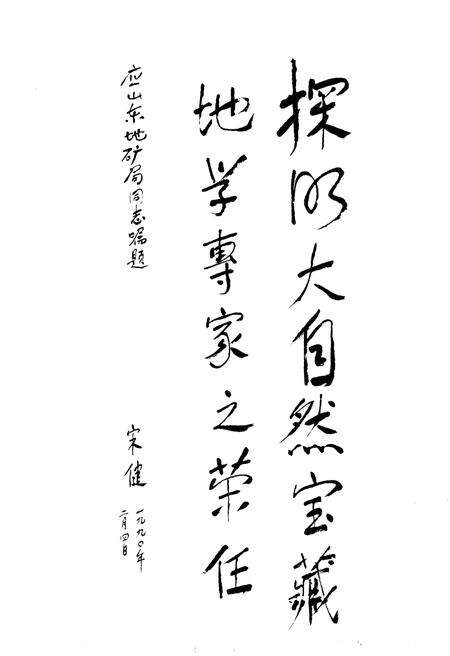 探明大自然宝藏
地学專家之荣任
应山东地矿局同志嘱题
宋健
一九九〇年
二月四日